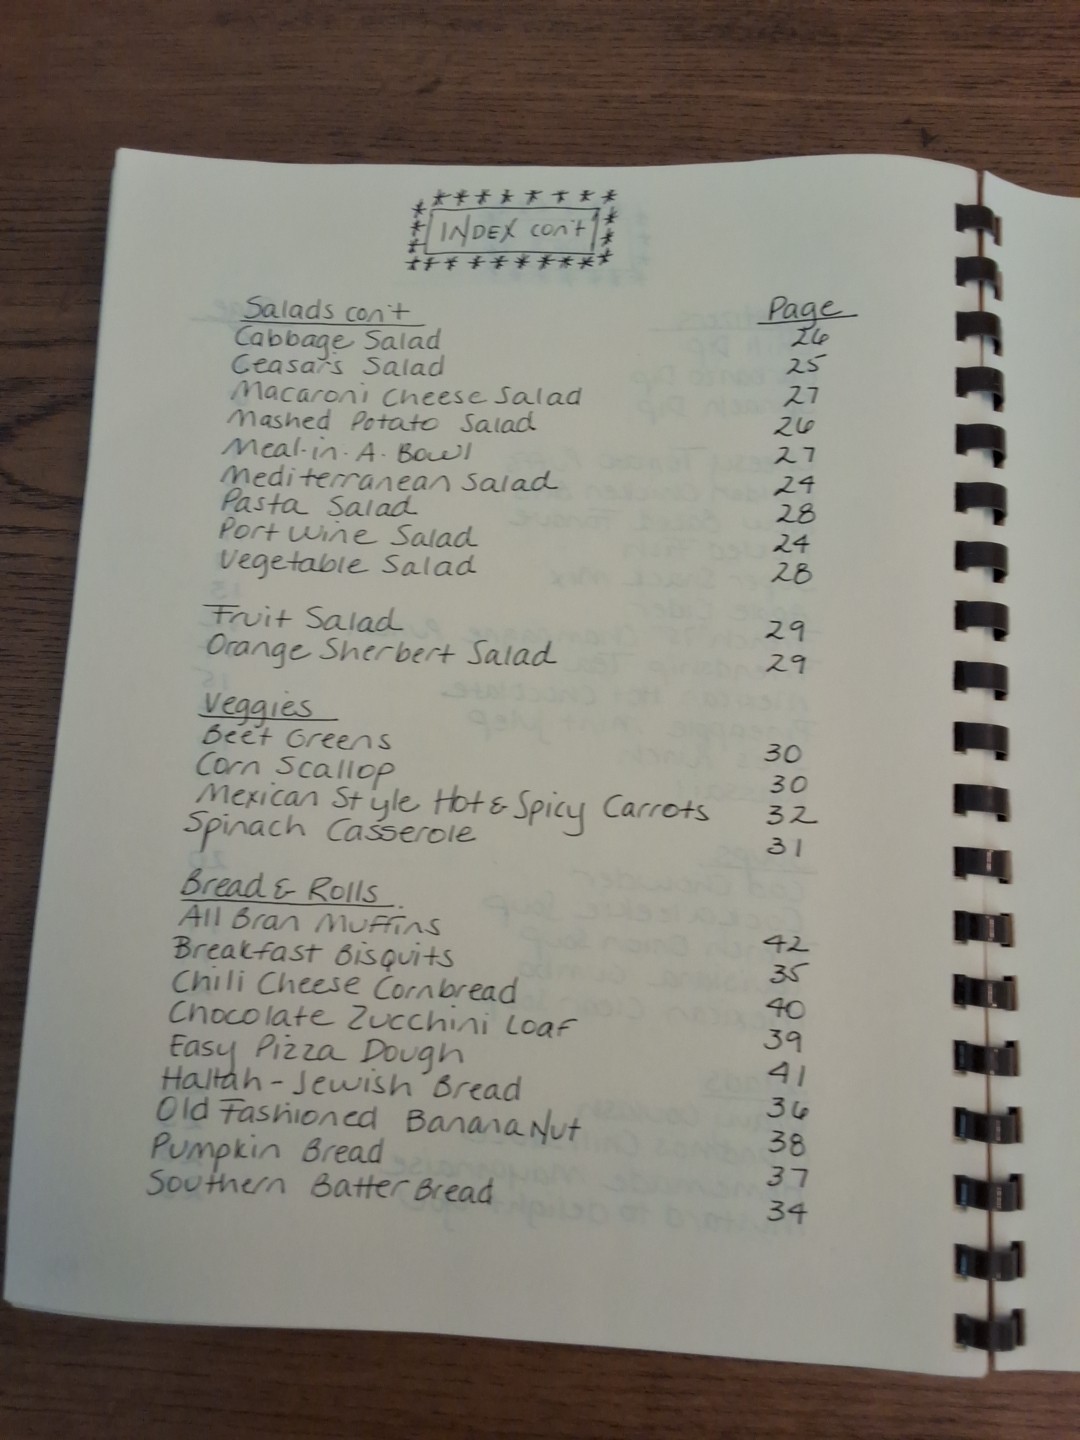 INDEX con't
Salads con't Page
Cabbage Salad 26
Ceasar's Salad 25
Macaroni Cheese Salad 27
Mashed Potato Salad 26
Meal-in-A-Bowl 27
Mediterranean Salad 24
Pasta Salad 28
Port Wine Salad 24
Vegetable Salad 28
Fruit Salad 29
Orange Sherbert Salad 29
Veggies
Beet Greens 30
Corn Scallop 30
Mexican Style Hot & Spicy Carrots 32
Spinach Casserole 31
Bread & Rolls
All Bran Muffins 42
Breakfast Bisquits 35
Chili Cheese Cornbread 40
Chocolate Zucchini Loaf 39
Easy Pizza Dough 41
Hallah-Jewish Bread 36
Old Fashioned Banana Nut 38
Pumpkin Bread 37
Southern Batter Bread 34